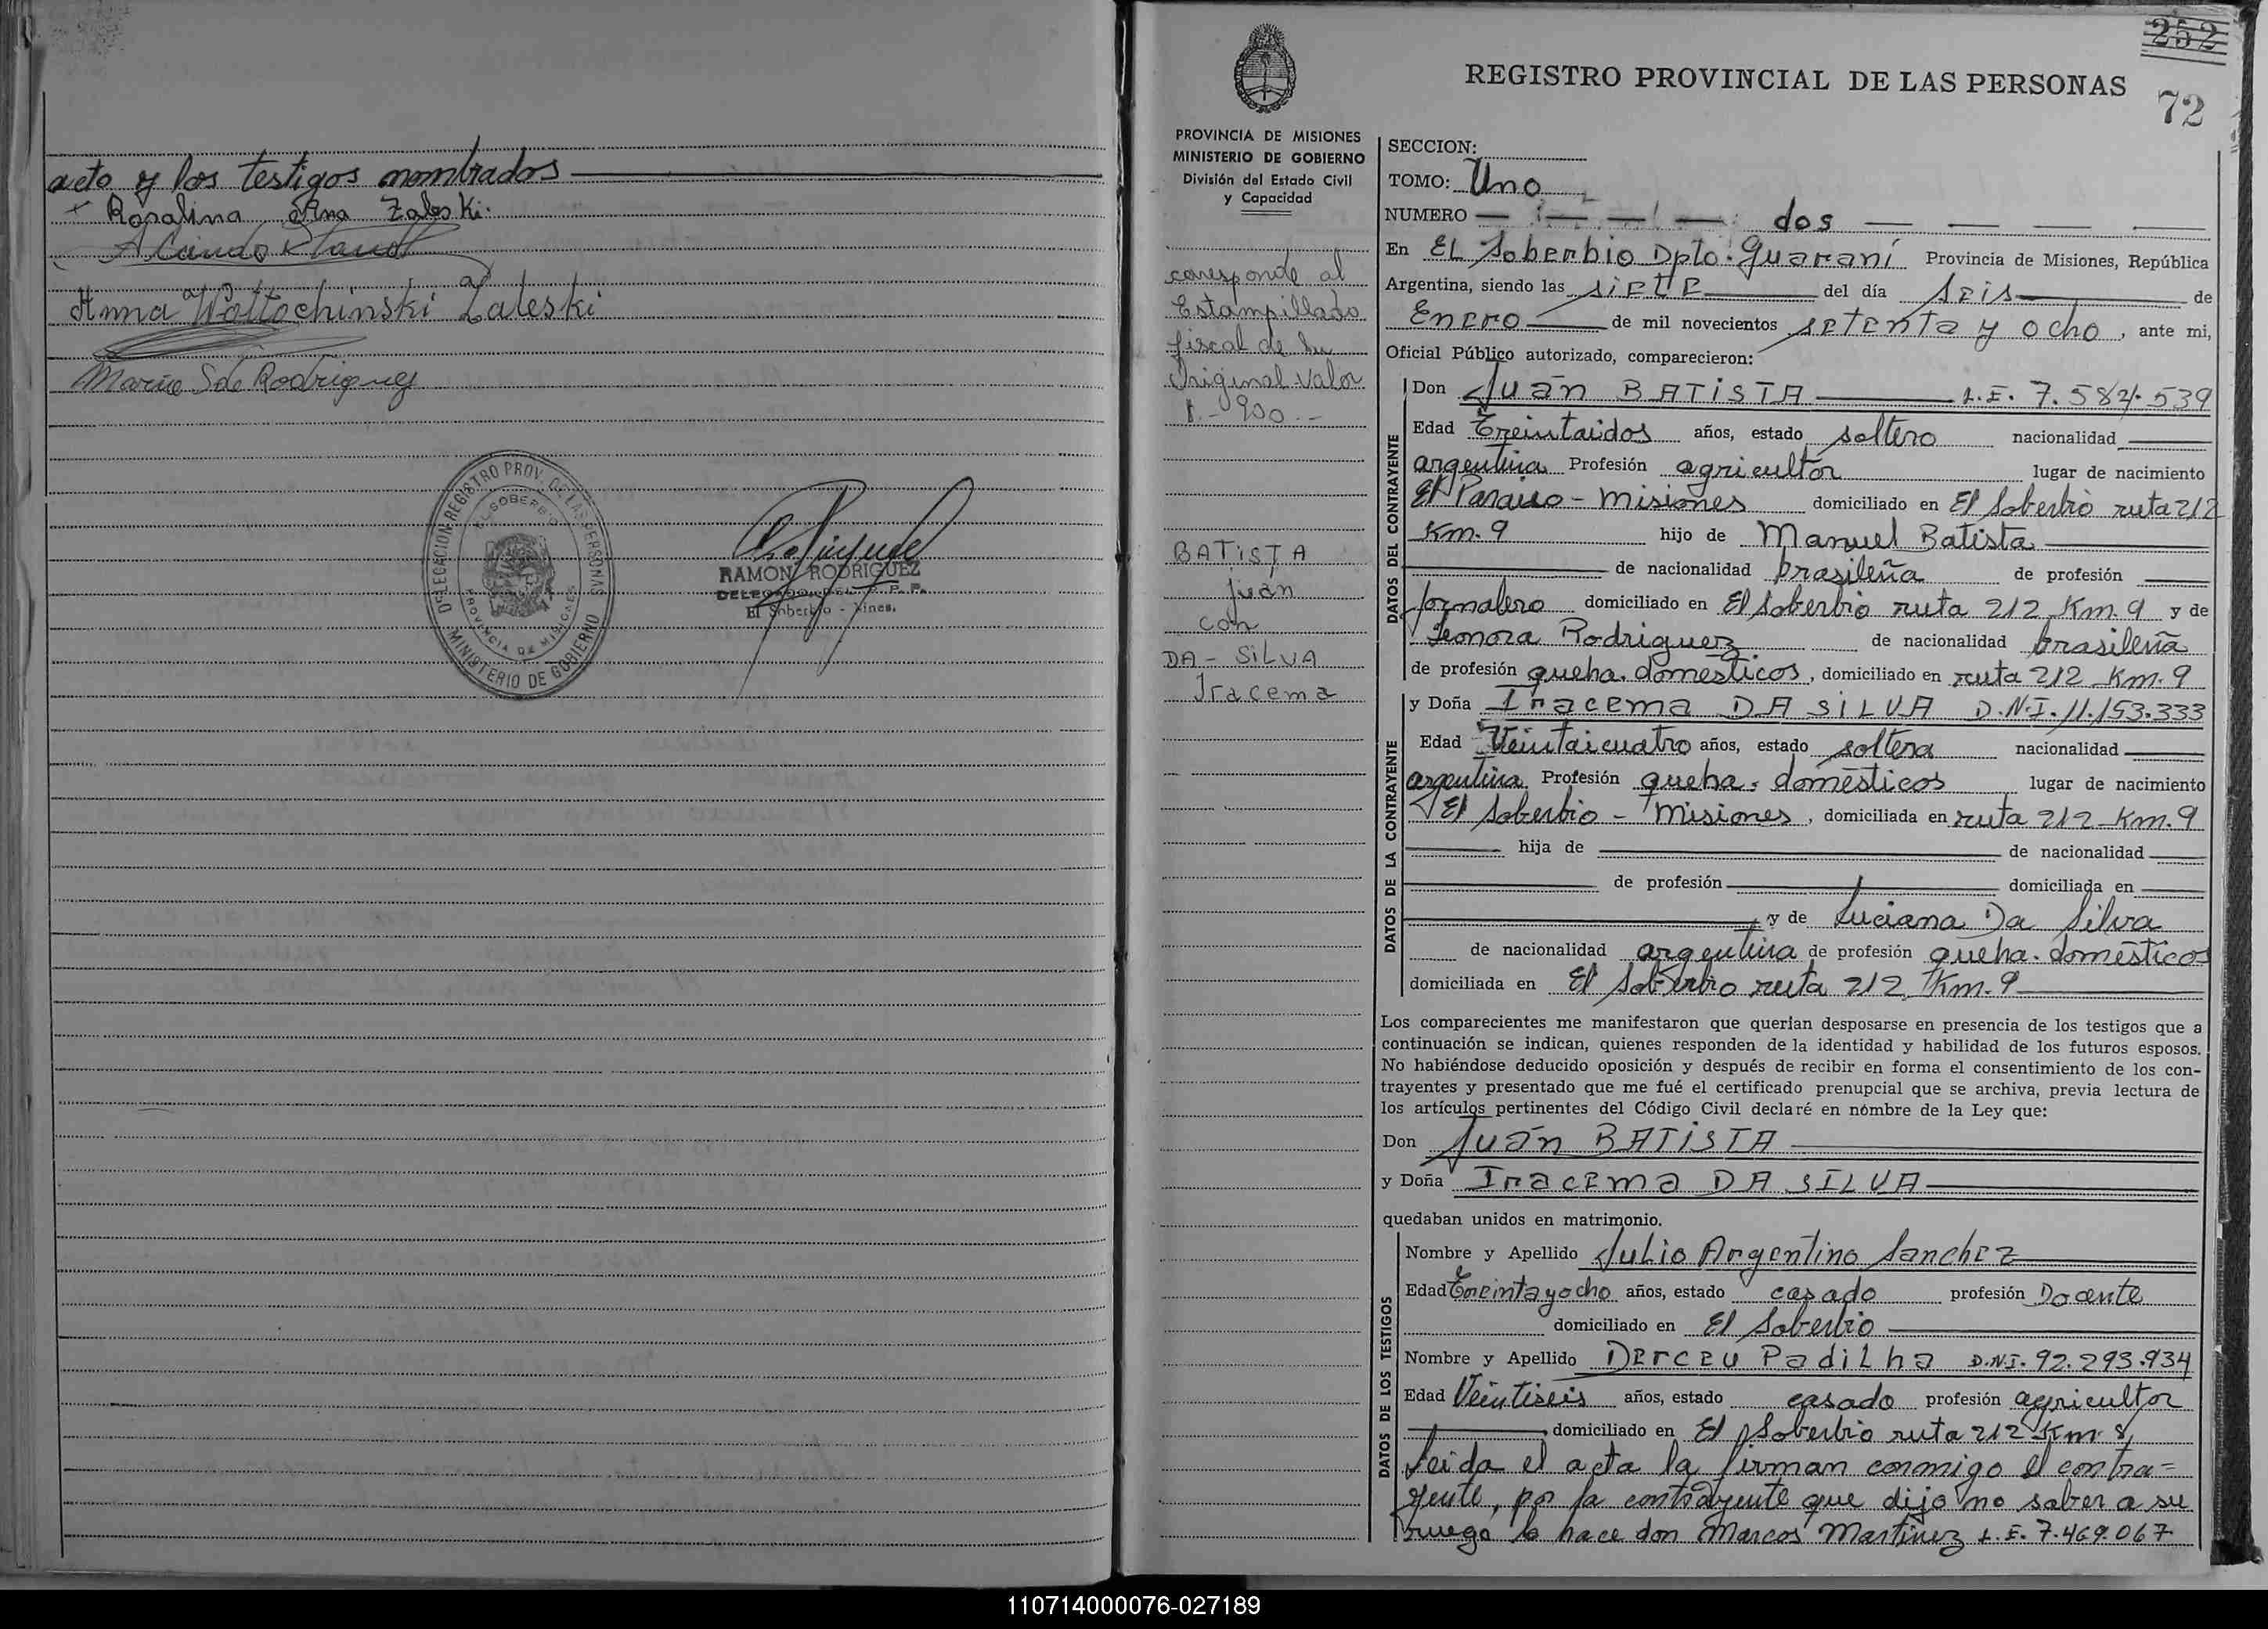 acto y los testigos nombrados
Rosalina Ana Zaleski.
Anna Woitochinski Zaleski
Maria S de Rodriguez
DELEGACION REGISTRO PROV. DE LAS PERSONAS
EL SOBERBIO
PROVINCIA DE MISIONES
MINISTERIO DE GOBIERNO
RAMON RODRIGUEZ
El Soberbio - Mnes.
252
REGISTRO PROVINCIAL DE LAS PERSONAS
72
PROVINCIA DE MISIONES
MINISTERIO DE GOBIERNO
División del Estado Civil
y Capacidad
corresponde al
Estampillado
fiscal de su
Original valor
900.-
BATISTA
Juán
con
DA-SILVA
Iracema
SECCION:
TOMO: Uno
NUMERO dos
En EL Soberbio Dpto. Guaraní Provincia de Misiones, República
Argentina, siendo las siete del día seis de
Enero de mil novecientos setenta y ocho, ante mi,
Oficial Público autorizado, comparecieron:
DATOS DEL CONTRAYENTE
Don Juán BATISTA L.E. 7.584.539
Edad Treintaidos años, estado soltero nacionalidad
argentina Profesión agricultor lugar de nacimiento
El Paraiso - Misiones domiciliado en El Soberbio ruta 212
Km. 9 hijo de Manuel Batista
de nacionalidad brasileña de profesión
jornalero domiciliado en El Soberbio ruta 212 Km. 9 y de
Leonora Rodriguez de nacionalidad brasileña
de profesión queha. domésticos, domiciliado en ruta 212 Km. 9
DATOS DE LA CONTRAYENTE
y Doña Iracema DA SILVA D.N.I. 11.153.333
Edad Veintaicuatro años, estado soltera nacionalidad
argentina Profesión queha. domésticos lugar de nacimiento
El Soberbio - Misiones, domiciliada en ruta 212 Km. 9
hija de de nacionalidad
de profesión domiciliada en
y de Luciana Da Silva
de nacionalidad argentina de profesión queha. domésticos
domiciliada en El Soberbio ruta 212 Km. 9
Los comparecientes me manifestaron que querian desposarse en presencia de los testigos que a
continuación se indican, quienes responden de la identidad y habilidad de los futuros esposos.
No habiéndose deducido oposición y después de recibir en forma el consentimiento de los con-
trayentes y presentado que me fué el certificado prenupcial que se archiva, previa lectura de
los artículos pertinentes del Código Civil declaré en nómbre de la Ley que:
Don Juán BATISTA
y Doña Iracema DA SILVA
quedaban unidos en matrimonio.
DATOS DE LOS TESTIGOS
Nombre y Apellido Julio Argentino Sanchez
Edad Treintayocho años, estado casado profesión Docente
domiciliado en El Soberbio
Nombre y Apellido Derceu Padilha D.N.I. 92.293.934
Edad Veintiseis años, estado casado profesión agricultor
domiciliado en El Soberbio ruta 212 Km 8,
Leida el acta la firman conmigo el contra=
yente, por la contrayente que dijo no saber a su
ruego lo hace don Marcos Martinez L.E. 7.469.067
110714000076-027189